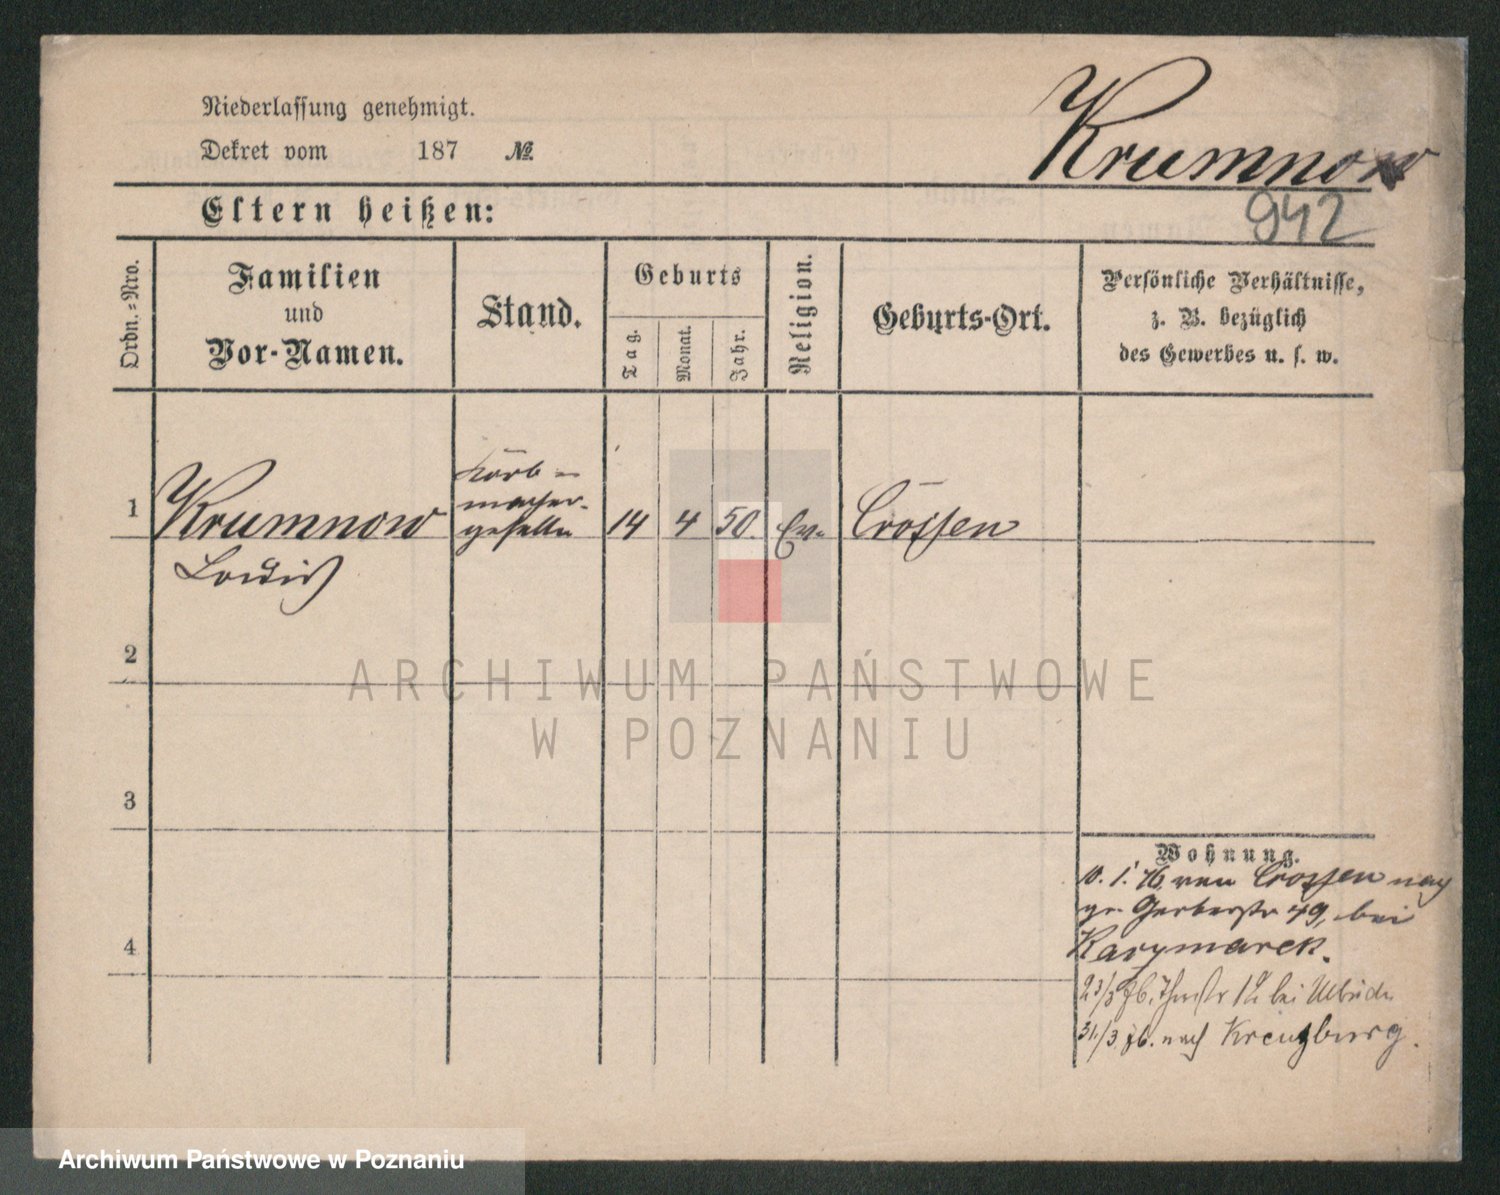 Niederlassung genehmigt.
Dekret vom 187 №
Krumnow
942
Eltern heißen:
Ordn.-Nro.
Familien
und
Vor-Namen.
Stand.
Geburts
Tag.
Monat.
Jahr.
Religion.
Geburts-Ort.
Persönliche Verhältnisse,
z. B. bezüglich
des Gewerbes u. s. w.
1
Krumnow
Louis
Korb-
macher-
geselle
14 4 50. Ev. Crossen
2
3
4
Wohnung.
10. 1. 76 von Crossen nach
gr. Gerberstr 49, bei
Karzmarek.
23/3 76. 12 bei
31./3. 76. nach Kreuzburg.
ARCHIWUM PAŃSTWOWE
W POZNANIU
Archiwum Państwowe w Poznaniu